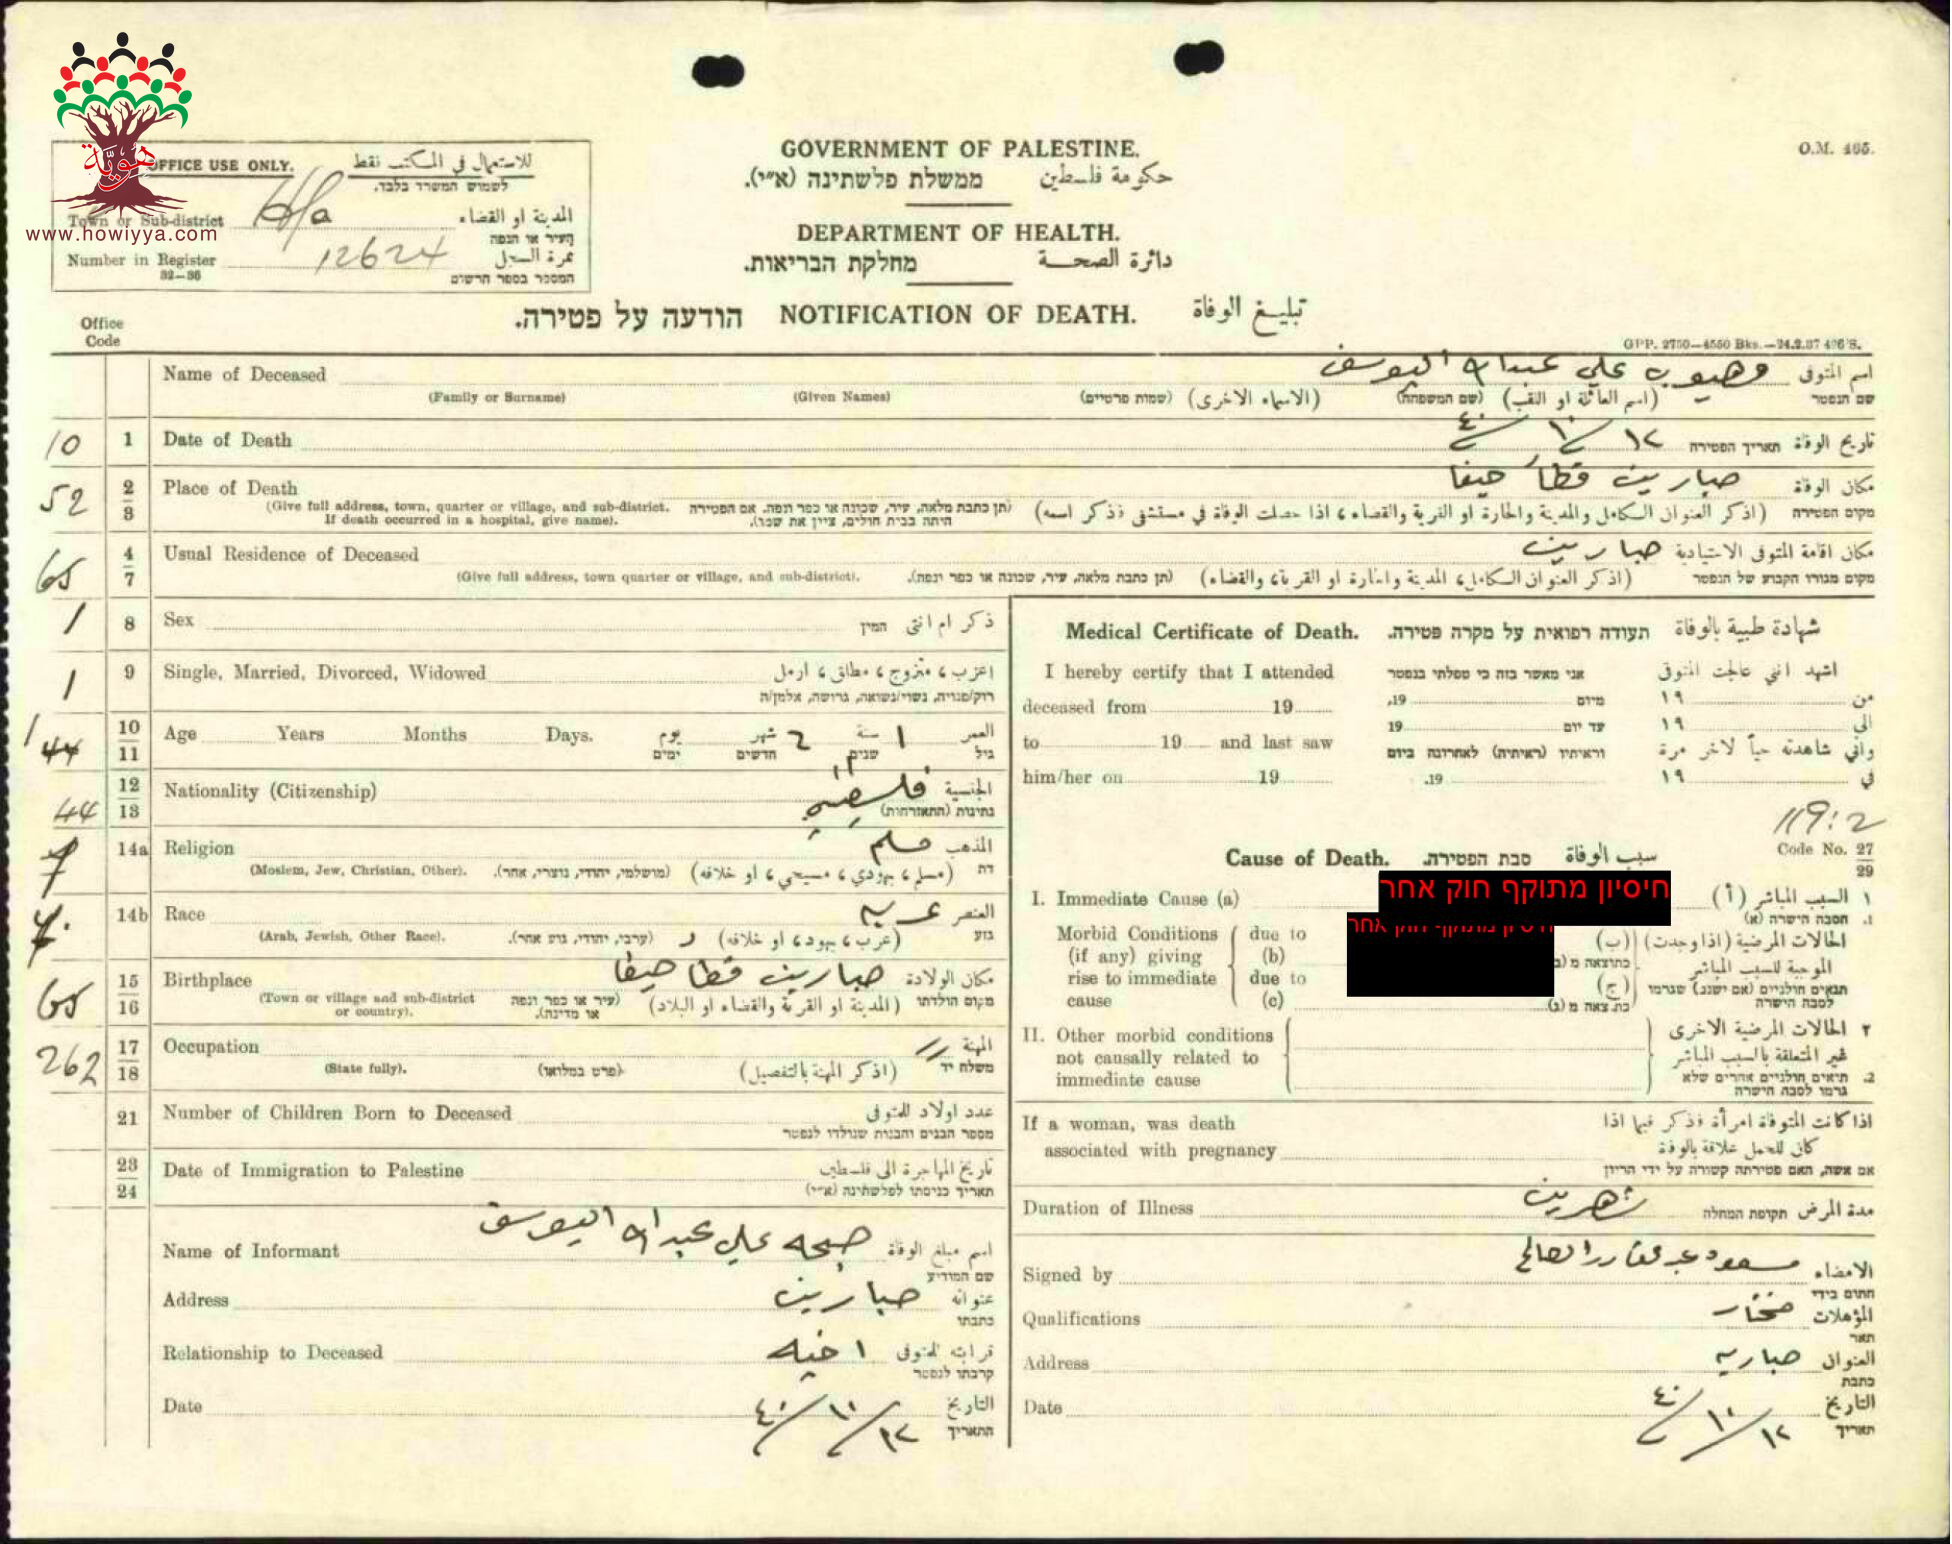 هوية
www.howiyya.com
OFFICE USE ONLY. للاستعمال في المكتب فقط
לשמוש המשרד בלבד.
Town or Sub-district المدينة او القضاء
העיר או הנפה
Number in Register 12624 نمرة السجل
32—36 המספר בספר הרשום
GOVERNMENT OF PALESTINE.
ממשלת פלשתינה (א״י). حكومة فلسطين
DEPARTMENT OF HEALTH.
מחלקת הבריאות. دائرة الصحة
O.M. 465.
הודעה על פטירה. NOTIFICATION OF DEATH. تبليغ الوفاة
Office
Code
GPP. 2750—4550 Bks.—24.2.37 426'S.
Name of Deceased علي عبدالله اليوسف اسم المتوفى
(Family or Surname) (Given Names) (שמות פרטיים) (الاسماء الاخرى) (שם המשפחה) (اسم العائلة او اللقب) שם הנפטר
10 1 Date of Death ١٢/١٠/٤٠ תאריך הפטירה تاريخ الوفاة
52 2 Place of Death صبارين قضا حيفا مكان الوفاة
3 (Give full address, town, quarter or village, and sub-district. (תן כתבת מלאה, עיר, שכונה או כפר ונפה. אם הפטירה (اذكر العنوان الكامل والمدينة والحارة او القرية والقضاء، اذا حصلت الوفاة في مستشفى فذكر اسمه) מקום הפטירה
If death occurred in a hospital, give name). היתה בבית חולים, ציין את שמו).
65 4 Usual Residence of Deceased صبارين مكان اقامة المتوفى الاعتيادية
7 (Give full address, town quarter or village, and sub-district). (תן כתבת מלאה, עיר, שכונה או כפר ונפה). (اذكر العنوان الكامل، المدينة والحارة او القرية، والقضاء) מקום מגורו הקבוע של הנפטר
1 8 Sex המין ذكر ام انثى
1 9 Single, Married, Divorced, Widowed اعزب، متزوج، مطلق، ارمل
רוק/פנויה, נשוי/נשואה, גרושה, אלמן/ה
1 44 10 Age Years Months Days. يوم 2 شهر ١ سنة العمر
11 ימים חדשים שנים גיל
12 Nationality (Citizenship) الجنسية
44 13 נתינות (התאזרחות)
7 14a Religion مسلم المذهب
(Moslem, Jew, Christian, Other). (מושלמי, יהודי, נוצרי, אחר). (مسلم، يهودي، مسيحي، او خلافه) דת
7 14b Race العنصر
(Arab, Jewish, Other Race). (ערבי, יהודי, גזע אחר). (عرب، يهود، او خلافه) גזע
65 15 Birthplace صبارين قضا حيفا مكان الولادة
16 (Town or village and sub-district (עיר או כפר ונפה (المدينة او القرية والقضاء او البلاد) מקום הולדתו
or country). או מדינה).
262 17 Occupation المهنة
18 (State fully). (פרט במלואו) (اذكر المهنة بالتفصيل) משלח יד
21 Number of Children Born to Deceased عدد اولاد المتوفى
מספר הבנים והבנות שנולדו לנפטר
23 Date of Immigration to Palestine تاريخ المهاجرة الى فلسطين
24 תאריך כניסתו לפלשתינה (א״י)
Name of Informant علي عبدالله اليوسف اسم مبلغ الوفاة
שם המודיע
Address صبارين عنوانه
כתבתו
Relationship to Deceased قرابته للمتوفى
קרבתו לנפטר
Date ١٢/١٠/٤٠ التاريخ
התאריך
Medical Certificate of Death. תעודה רפואית על מקרה פטירה. شهادة طبية بالوفاة
I hereby certify that I attended אני מאשר בזה כי טפלתי בנפטר اشهد انني عالجت المتوفى
deceased from 19 מיום 19, من ١٩
to 19 and last saw עד יום 19 الى ١٩
וראיתיו (ראיתיה) לאחרונה ביום واني شاهدته حياً لآخر مرة
him/her on 19 19. في ١٩
119:2
Cause of Death. סבת הפטירה. سبب الوفاة Code No. 27
29
I. Immediate Cause (a) חיסיון מתוקף חוק אחר ١ السبب المباشر (أ)
1. הסבה הישרה (א)
Morbid Conditions due to חיסיון מתוקף חוק אחר الحالات المرضية (اذا وجدت) (ب)
(if any) giving (b) الموجبة للسبب المباشر
rise to immediate due to תנאים חולניים (אם ישנם) שגרמו (ج)
cause (c) לסבה הישרה
II. Other morbid conditions ٢ الحالات المرضية الاخرى
not causally related to غير المتعلقة بالسبب المباشر
immediate cause 2. תנאים חולניים אחרים שלא
גרמו לסבה הישרה
If a woman, was death اذا كانت المتوفاة امرأة فذكر فيما اذا
associated with pregnancy كان للحمل علاقة بالوفاة
אם אשה, האם פטירתה קשורה על ידי הריון
Duration of Illness شهرين תקופת המחלה مدة المرض
Signed by مسعود الامضاء
חתום בידי
Qualifications مختار المؤهلات
תאר
Address العنوان
כתבת
Date ١٢/١٠/٤٠ التاريخ
תאריך